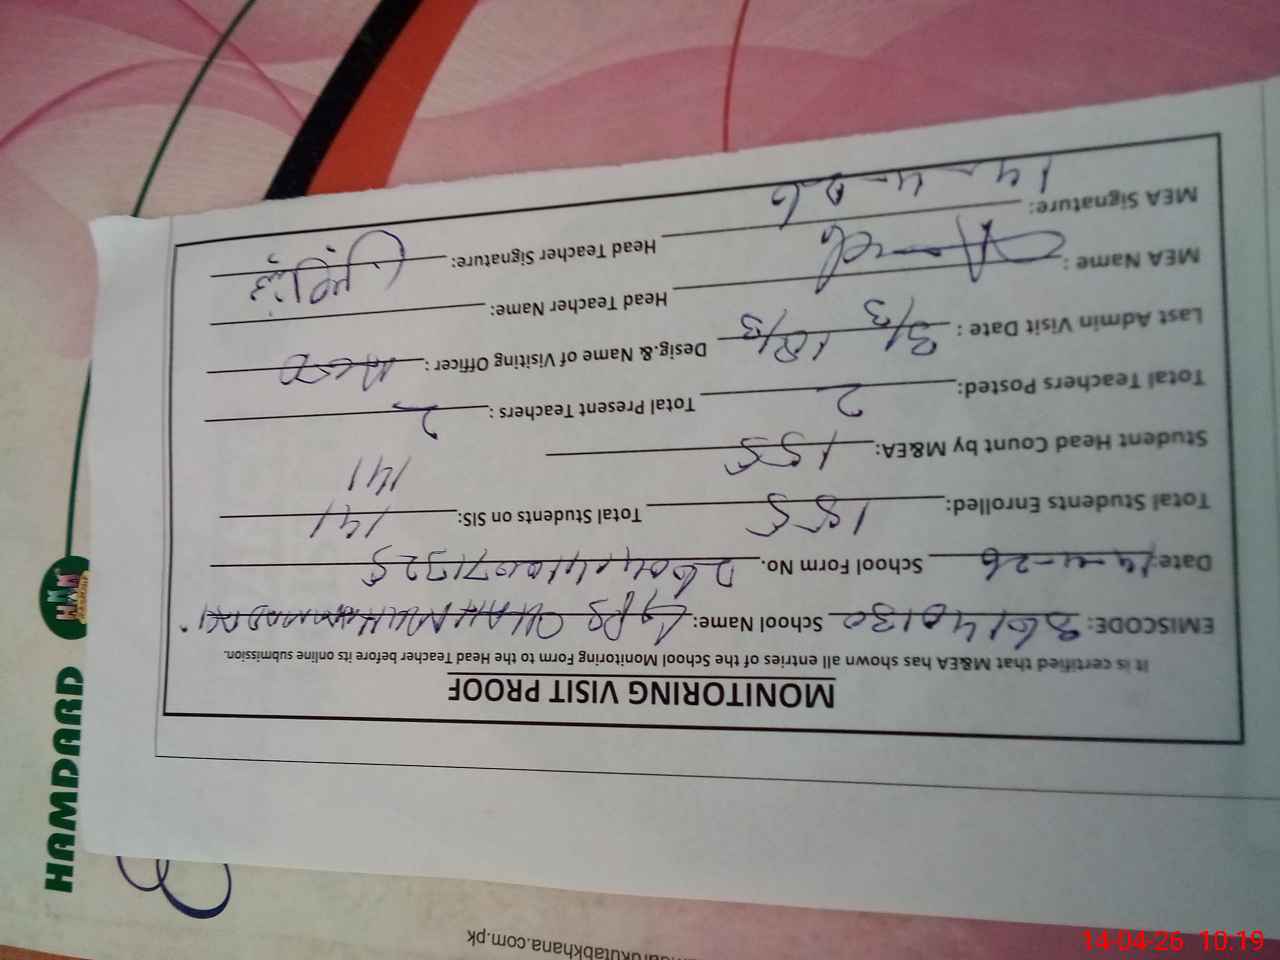 MONITORING VISIT PROOF
It is certified that M&EA has shown all entries of the School Monitoring Form to the Head Teacher before its online submission.
EMISCODE: 36140130 School Name: GPS CHAH MUHAMMAD
Date: 14-4-26 School Form No.
Total Students Enrolled: 155 Total Students on SIS: 141
141
Student Head Count by M&EA: 155
Total Teachers Posted: 2 Total Present Teachers : 2
Last Admin Visit Date : 31/3 18/3 Desig.& Name of Visiting Officer :
MEA Name : Head Teacher Name:
MEA Signature: 14-4-026 Head Teacher Signature:
HAMDARD
kutabkhana.com.pk
14-04-26 10:19